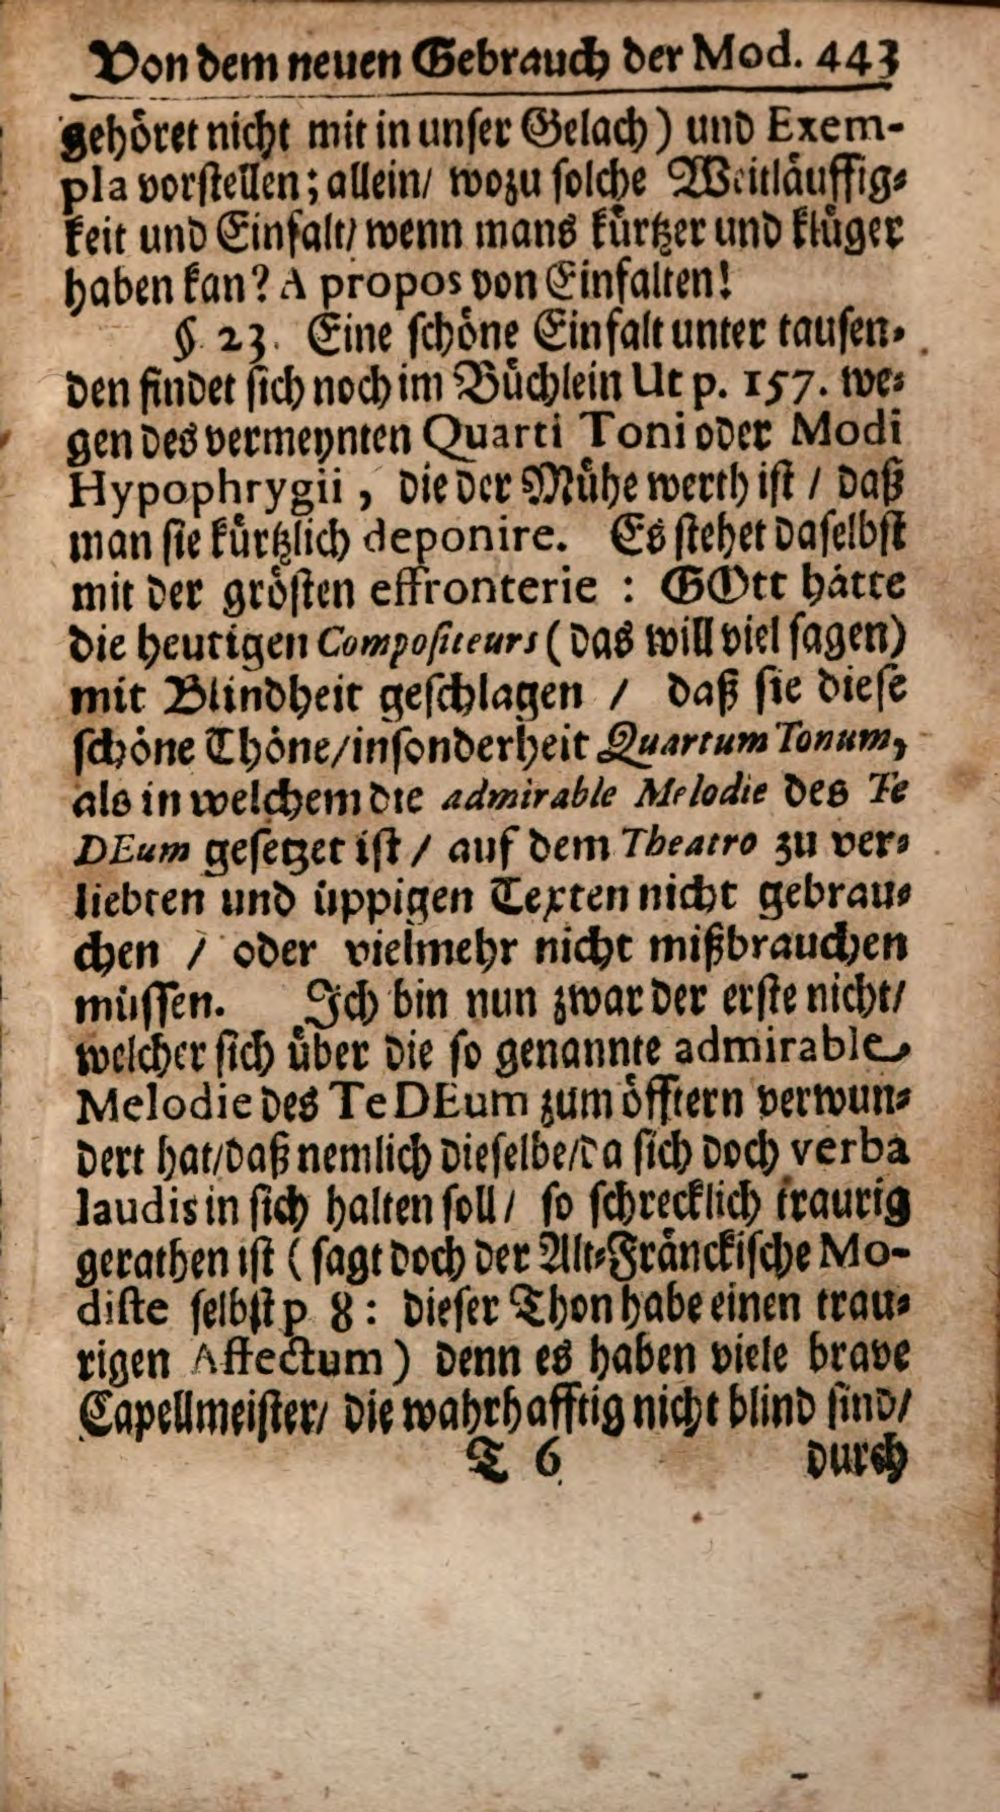 Von dem neuen Gebrauch der Mod. 443
gehöret nicht mit in unser Gelach) und Exem-
pla vorstellen; allein/ wozu solche Weitläuffig-
keit und Einfalt/ wenn mans kürtzer und klüger
haben kan? A propos von Einfalten!
§. 23. Eine schöne Einfalt unter tausen-
den findet sich noch im Büchlein Ut p. 157. we-
gen des vermeynten Quarti Toni oder Modi
Hypophrygii, die der Mühe werth ist / daß
man sie kürtzlich deponire. Es stehet daselbst
mit der grösten effronterie : GOtt hätte
die heutigen Compositeurs (das will viel sagen)
mit Blindheit geschlagen / daß sie diese
schöne Thöne/insonderheit Quartum Tonum,
als in welchem die admirable Melodie des Te
DEum gesetzet ist / auf dem Theatro zu ver-
liebten und üppigen Texten nicht gebrau-
chen / oder vielmehr nicht mißbrauchen
müssen. Ich bin nun zwar der erste nicht/
welcher sich über die so genannte admirable
Melodie des Te DEum zum öfftern verwun-
dert hat/daß nemlich dieselbe/da sich doch verba
laudis in sich halten soll/ so schrecklich traurig
gerathen ist (sagt doch der Alt-Fränckische Mo-
diste selbst p 8: dieser Thon habe einen trau-
rigen Affectum) denn es haben viele brave
Capellmeister/ die wahrhafftig nicht blind sind/
T 6 durch